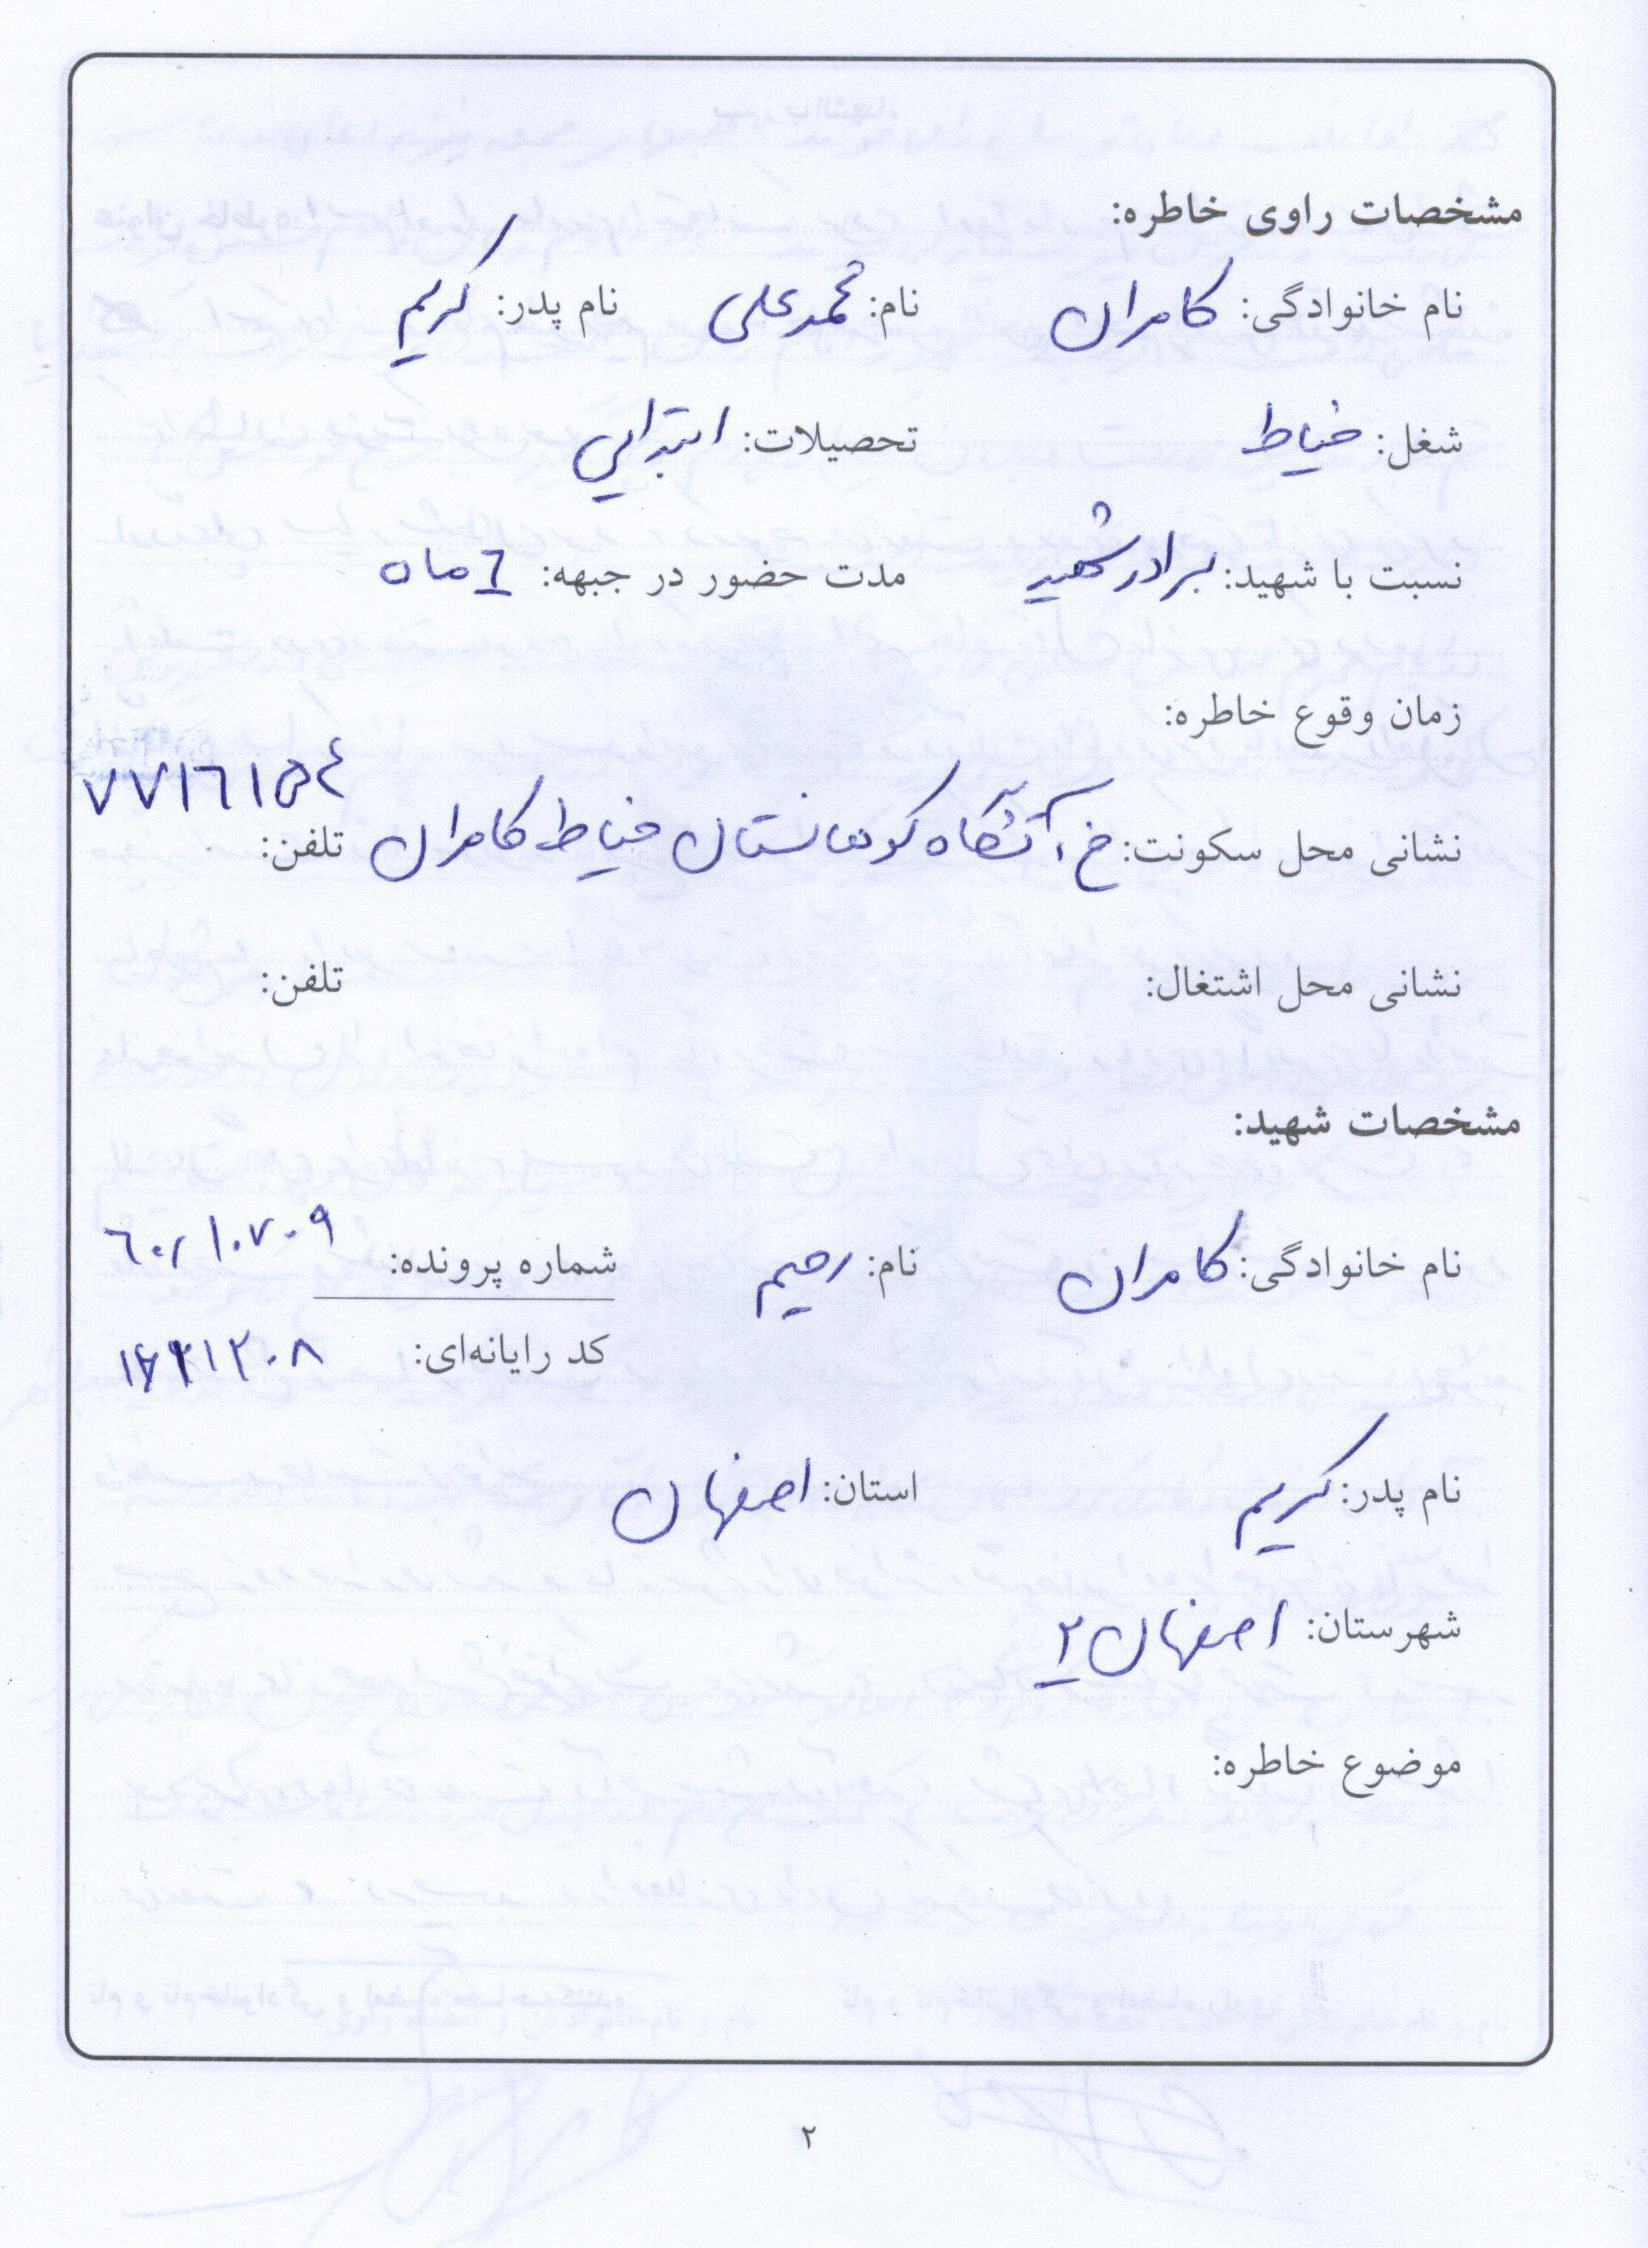 مشخصات راوی خاطره:
نام خانوادگی: کامران نام: محمدعلی نام پدر: کریم
شغل: خیاط تحصیلات: ابتدایی
نسبت با شهید: برادر شهید مدت حضور در جبهه: ٦ ماه
زمان وقوع خاطره:
نشانی محل سکونت: خ آتشگاه کوهانستان خیاط کامران تلفن: ٧٧١٦١٥٤
نشانی محل اشتغال: تلفن:
مشخصات شهید:
نام خانوادگی: کامران نام: رحیم شماره پرونده: ٦٠٠١٠٧٠٩
کد رایانه‌ای:
نام پدر: کریم استان: اصفهان
شهرستان: اصفهان ٢
موضوع خاطره:
٢